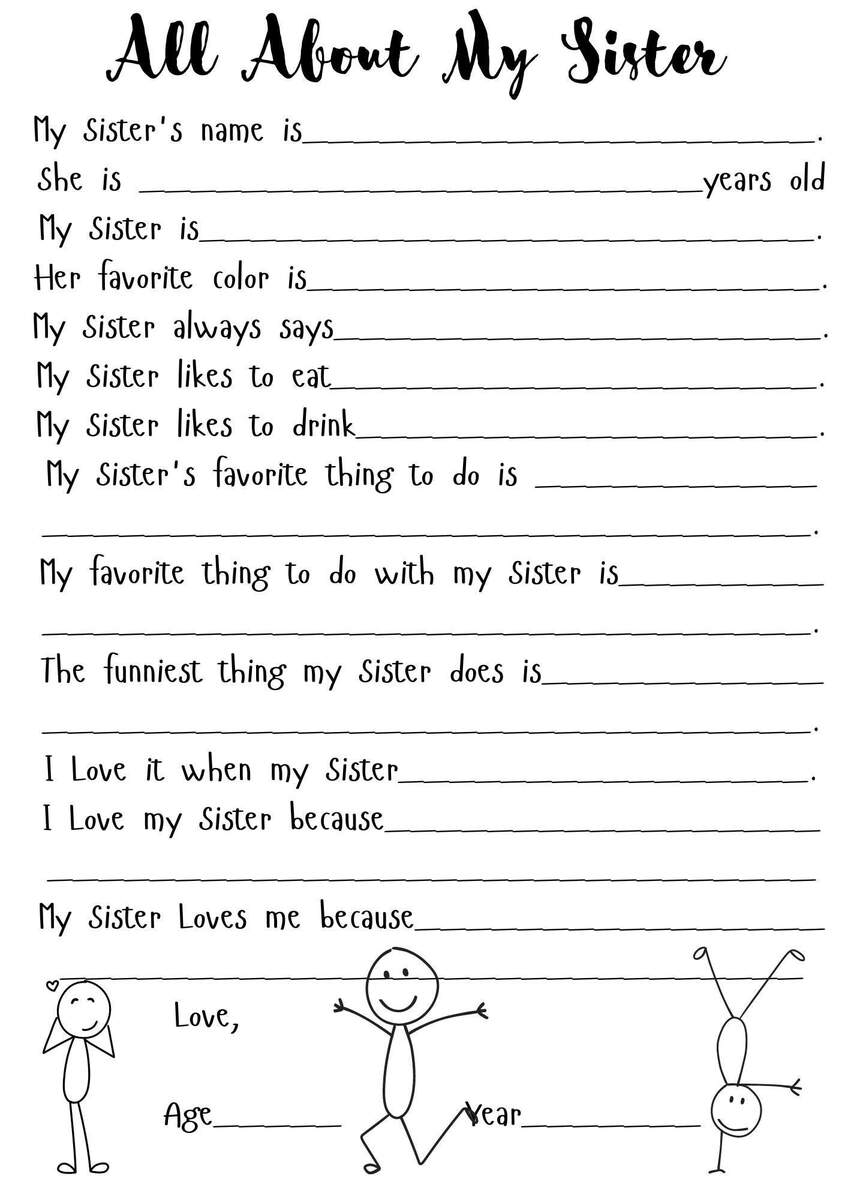 All About My Sister
My Sister's name is____________________.
She is ____________________years old
My Sister is____________________.
Her favorite color is____________________.
My Sister always says____________________.
My Sister likes to eat____________________.
My Sister likes to drink____________________.
My Sister's favorite thing to do is ____________________
____________________.
My favorite thing to do with my Sister is____________________
____________________.
The funniest thing my Sister does is____________________
____________________.
I Love it when my Sister____________________.
I Love my Sister because____________________
____________________
My Sister Loves me because____________________
____________________
Love,
Age__________ Year__________